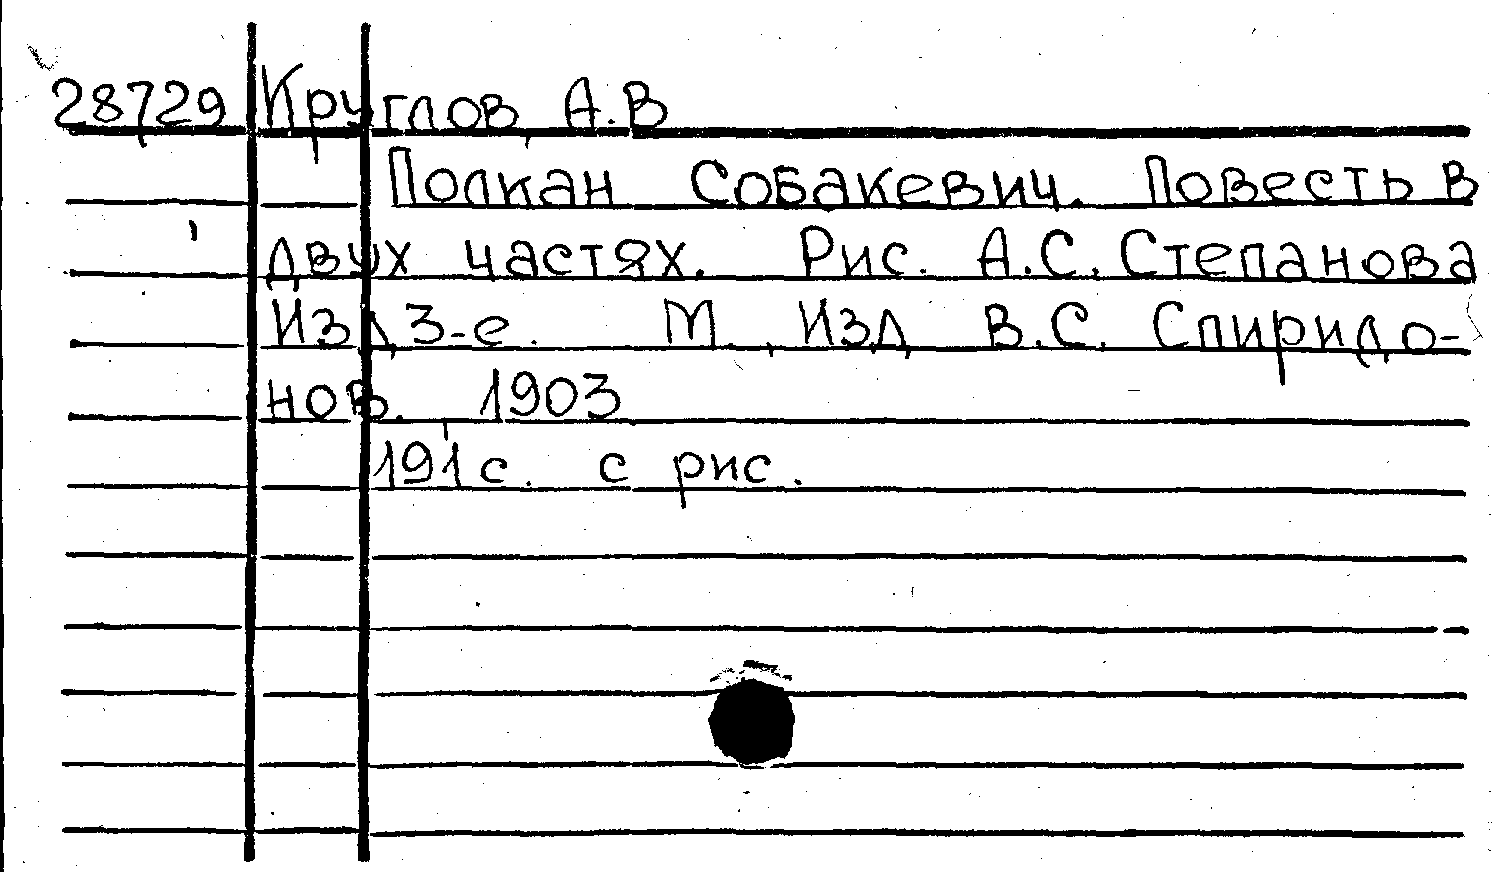 28729 Круглов, А.В
Полкан Собакевич. Повесть в
двух частях. Рис. А.С. Степанова
Изд. 3-е. М., Изд. В.С. Спиридо-
нов. 1903
191 с. с рис.